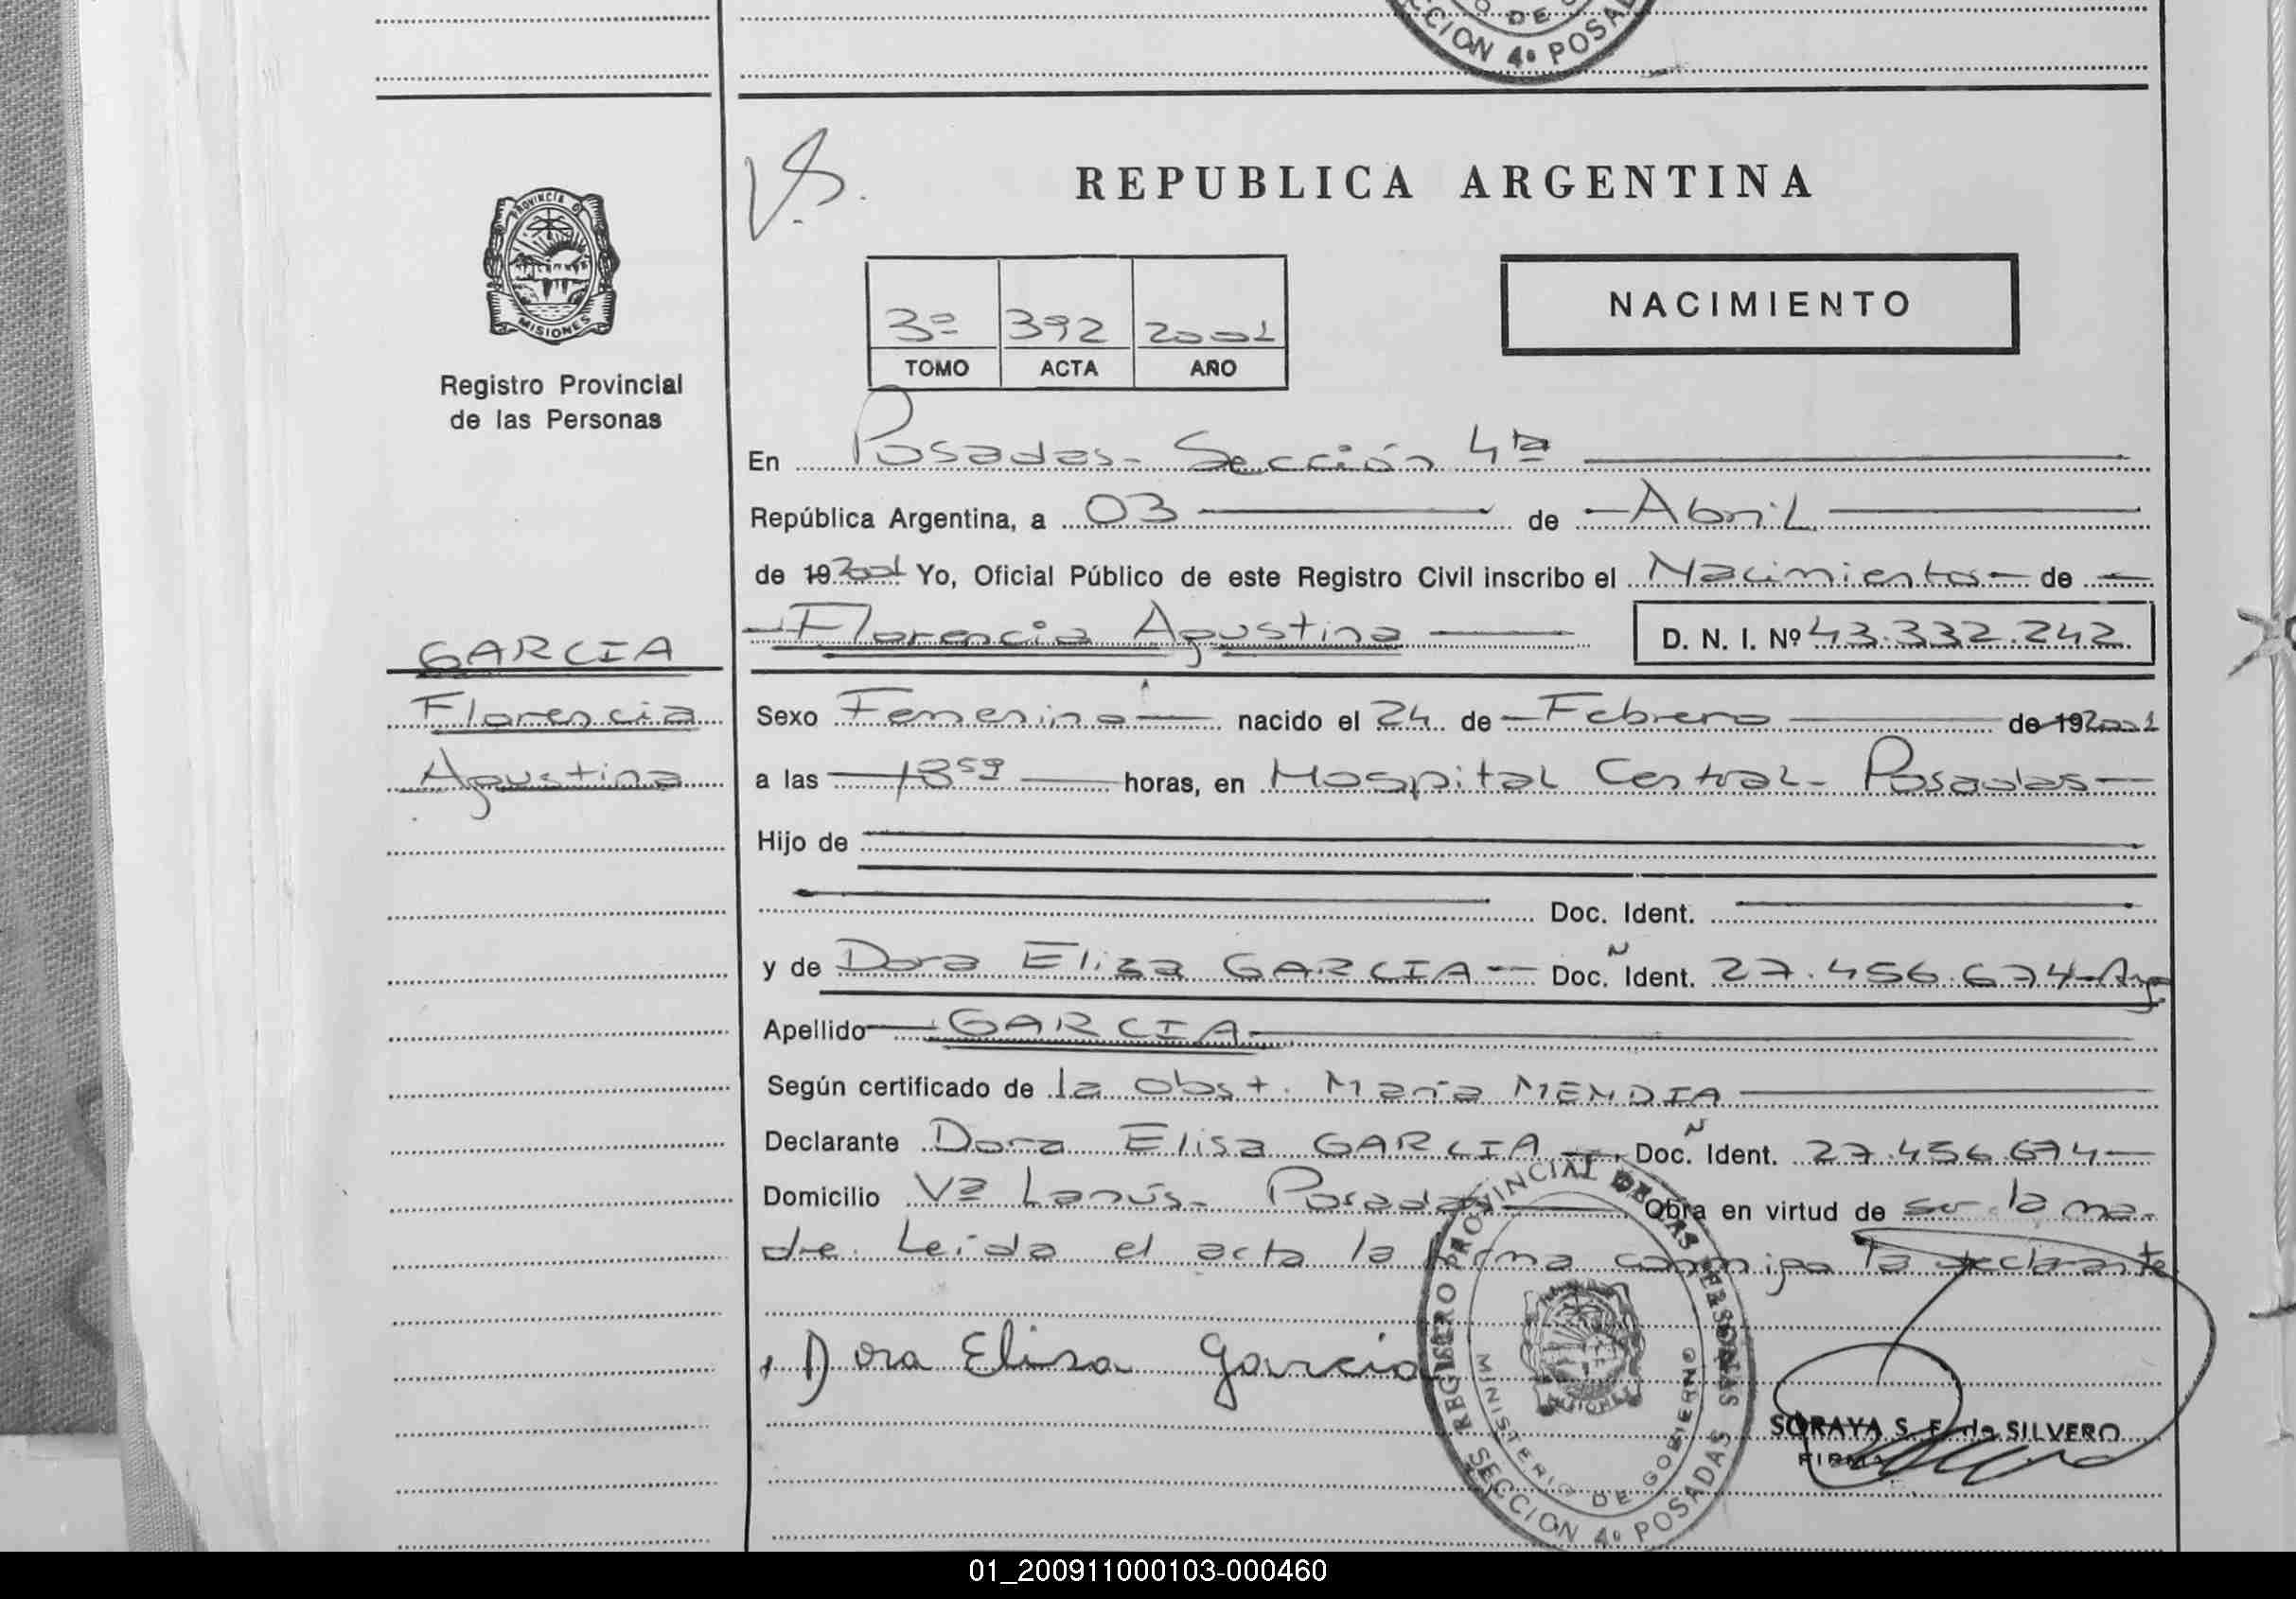 CCION 4º POSAD
V.S.
REPUBLICA ARGENTINA
PROVINCIA D
MISIONES
Registro Provincial
de las Personas
3º 392 2001
TOMO ACTA AÑO
NACIMIENTO
En Posadas- Sección 4ta
República Argentina, a 03 de Abril
de 19 2001 Yo, Oficial Público de este Registro Civil inscribo el Nacimiento de
Florencia Agustina D. N. I. Nº 43.332.242
GARCIA
Florencia
Agustina
Sexo Femenino nacido el 24 de Febrero de 19 2001
a las 18 59 horas, en Hospital Central- Posadas
Hijo de
Doc. Ident.
y de Dora Elisa GARCIA Doc. Ident. 27.456.674-Arg
Apellido GARCIA
Según certificado de la obst. María MENDIA
Declarante Dora Elisa GARCIA Doc. Ident. 27.456.674
Domicilio Vª Lanús- Posadas Obra en virtud de ser la ma-
dre. Leida el acta la firma conmigo la declarante
Dora Elisa Garcia
REGISTRO PROVINCIAL DE LAS PERSONAS
MINISTERIO DE GOBIERNO
SECCION 4º POSADAS
SORAYA S. F. de SILVERO
FIRMA
01_200911000103-000460